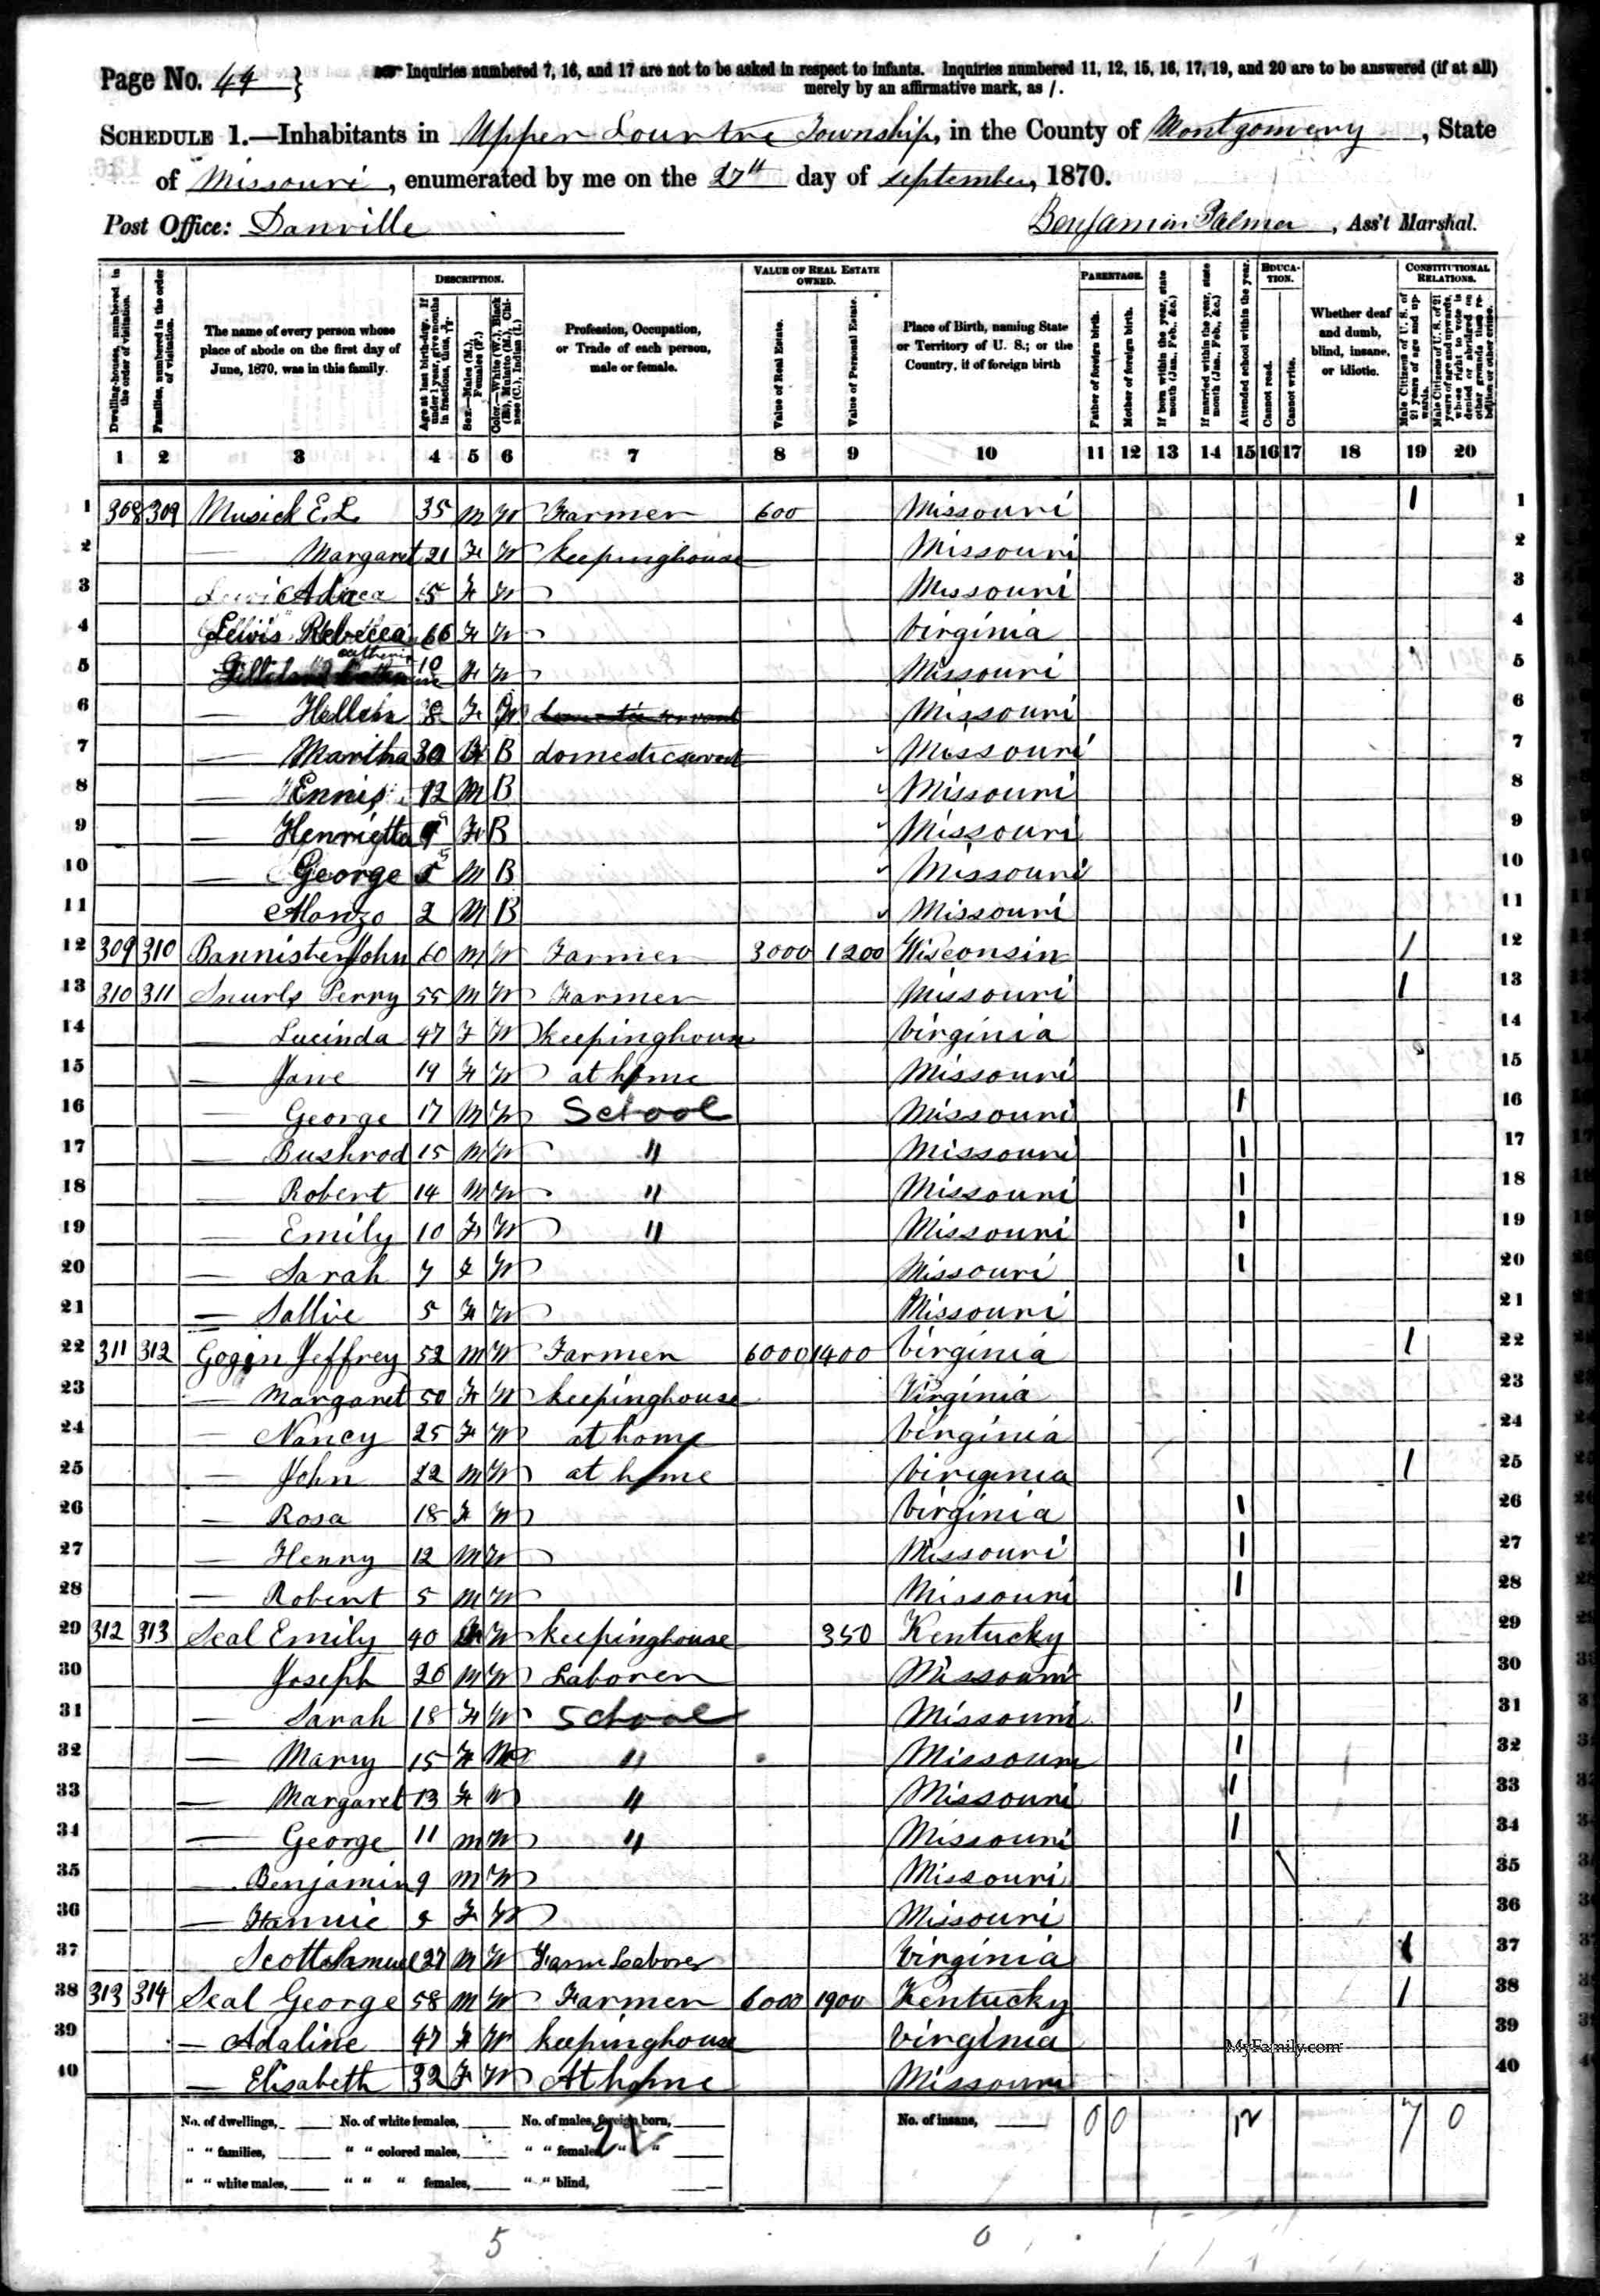 Page No. 44 } Inquiries numbered 7, 16, and 17 are not to be asked in respect to infants. Inquiries numbered 11, 12, 15, 16, 17, 19, and 20 are to be answered (if at all)
merely by an affirmative mark, as /.
SCHEDULE 1.—Inhabitants in Upper Loutre Township, in the County of Montgomery, State
of Missouri, enumerated by me on the 27th day of September, 1870.
Post Office: Danville Benjamin Palmer, Ass't Marshal.
DESCRIPTION. VALUE OF REAL ESTATE OWNED. PARENTAGE. EDUCATION. CONSTITUTIONAL RELATIONS.
Dwelling-houses, numbered in the order of visitation.
Families, numbered in the order of visitation.
The name of every person whose place of abode on the first day of June, 1870, was in this family.
Age at last birth-day. If under 1 year, give months in fractions, thus,
Sex.—Males (M.), Females (F.)
Color.—White (W.), Black (B.), Mulatto (M.), Chinese (C.), Indian (I.)
Profession, Occupation, or Trade of each person, male or female.
Value of Real Estate.
Value of Personal Estate.
Place of Birth, naming State or Territory of U. S.; or the Country, if of foreign birth
Father of foreign birth.
Mother of foreign birth.
If born within the year, state month (Jan., Feb., &c.)
If married within the year, state month (Jan., Feb., &c.)
Attended school within the year.
Cannot read.
Cannot write.
Whether deaf and dumb, blind, insane, or idiotic.
Male Citizens of U. S. of 21 years of age and upwards.
Male Citizens of U. S. of 21 years of age and upwards, whose right to vote is denied or abridged on other grounds than rebellion or other crime.
1 2 3 4 5 6 7 8 9 10 11 12 13 14 15 16 17 18 19 20
1 308 309 Musick E. L. 35 M W Farmer 600 Missouri 1 1
2 — Margaret 21 F W keepinghouse Missouri 2
3 Ada F W Missouri 3
4 Lewis Rebecca 66 F W Virginia 4
5 Catherin 10 F W Missouri 5
6 — Hellen 8 F W domestic servant Missouri 6
7 — Martha 30 F B domestic servant Missouri 7
8 — Ennis 12 M B Missouri 8
9 — Henrietta 9 F B Missouri 9
10 — George 5 M B Missouri 10
11 Alonzo 2 M B Missouri 11
12 309 310 Bannister John 60 M W Farmer 3000 1200 Wisconsin 1 12
13 310 311 Perry 55 M W Farmer Missouri 1 13
14 — Lucinda 47 F W keepinghouse Virginia 14
15 — Jane 19 F W at home Missouri 15
16 — George 17 M W School Missouri 1 16
17 — Bushrod 15 M W " Missouri 1 17
18 — Robert 14 M W " Missouri 1 18
19 — Emily 10 F W " Missouri 1 19
20 — Sarah 7 F W Missouri 1 20
21 — Sallie 5 F W Missouri 21
22 311 312 Gogin Jeffrey 52 M W Farmer 6000 1400 Virginia 1 22
23 — Margaret 50 F W keepinghouse Virginia 23
24 — Nancy 25 F W at home Virginia 24
25 — John 22 M W at home Virginia 1 25
26 — Rosa 18 F W Virginia 1 26
27 — Henry 12 M W Missouri 1 27
28 — Robert 5 M W Missouri 1 28
29 312 313 Seal Emily 40 F W keepinghouse 350 Kentucky 29
30 Joseph 20 M W Laborer Missouri 30
31 — Sarah 18 F W School Missouri 1 31
32 — Mary 15 F W " Missouri 1 32
33 — Margaret 13 F W " Missouri 1 33
34 — George 11 M W " Missouri 1 34
35 — Benjamin 9 M W Missouri 35
36 — Fannie F W Missouri 36
37 Scott Samuel 27 M W Farm Laborer Virginia 1 37
38 313 314 Seal George 58 M W Farmer 6000 1900 Kentucky 1 38
39 — Adaline 47 F W keepinghouse Virginia 39
40 — Elisabeth 32 F W At home Missouri 40
MyFamily.com
No. of dwellings, No. of white females, No. of males, foreign born, No. of insane, 0 0 12 7 0
" " families, " " colored males, " " females, " "
" " white males, " " " females, " " blind,
5 0